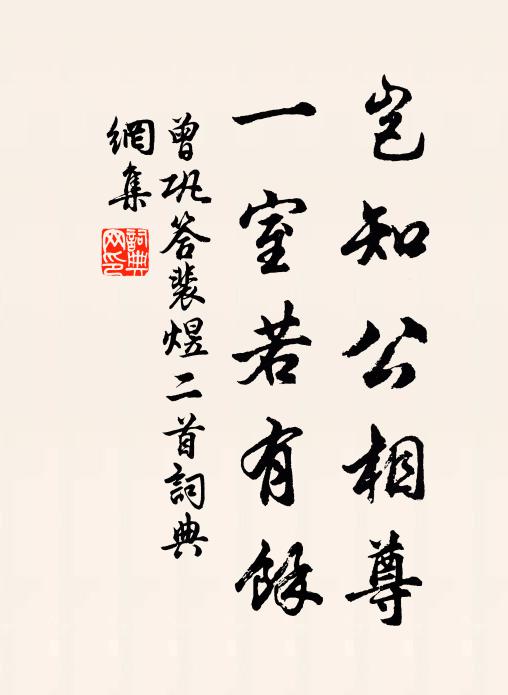 豈知公相尊
一室若有餘
曾巩答裴煜二首詞典
網集
詞典
网印